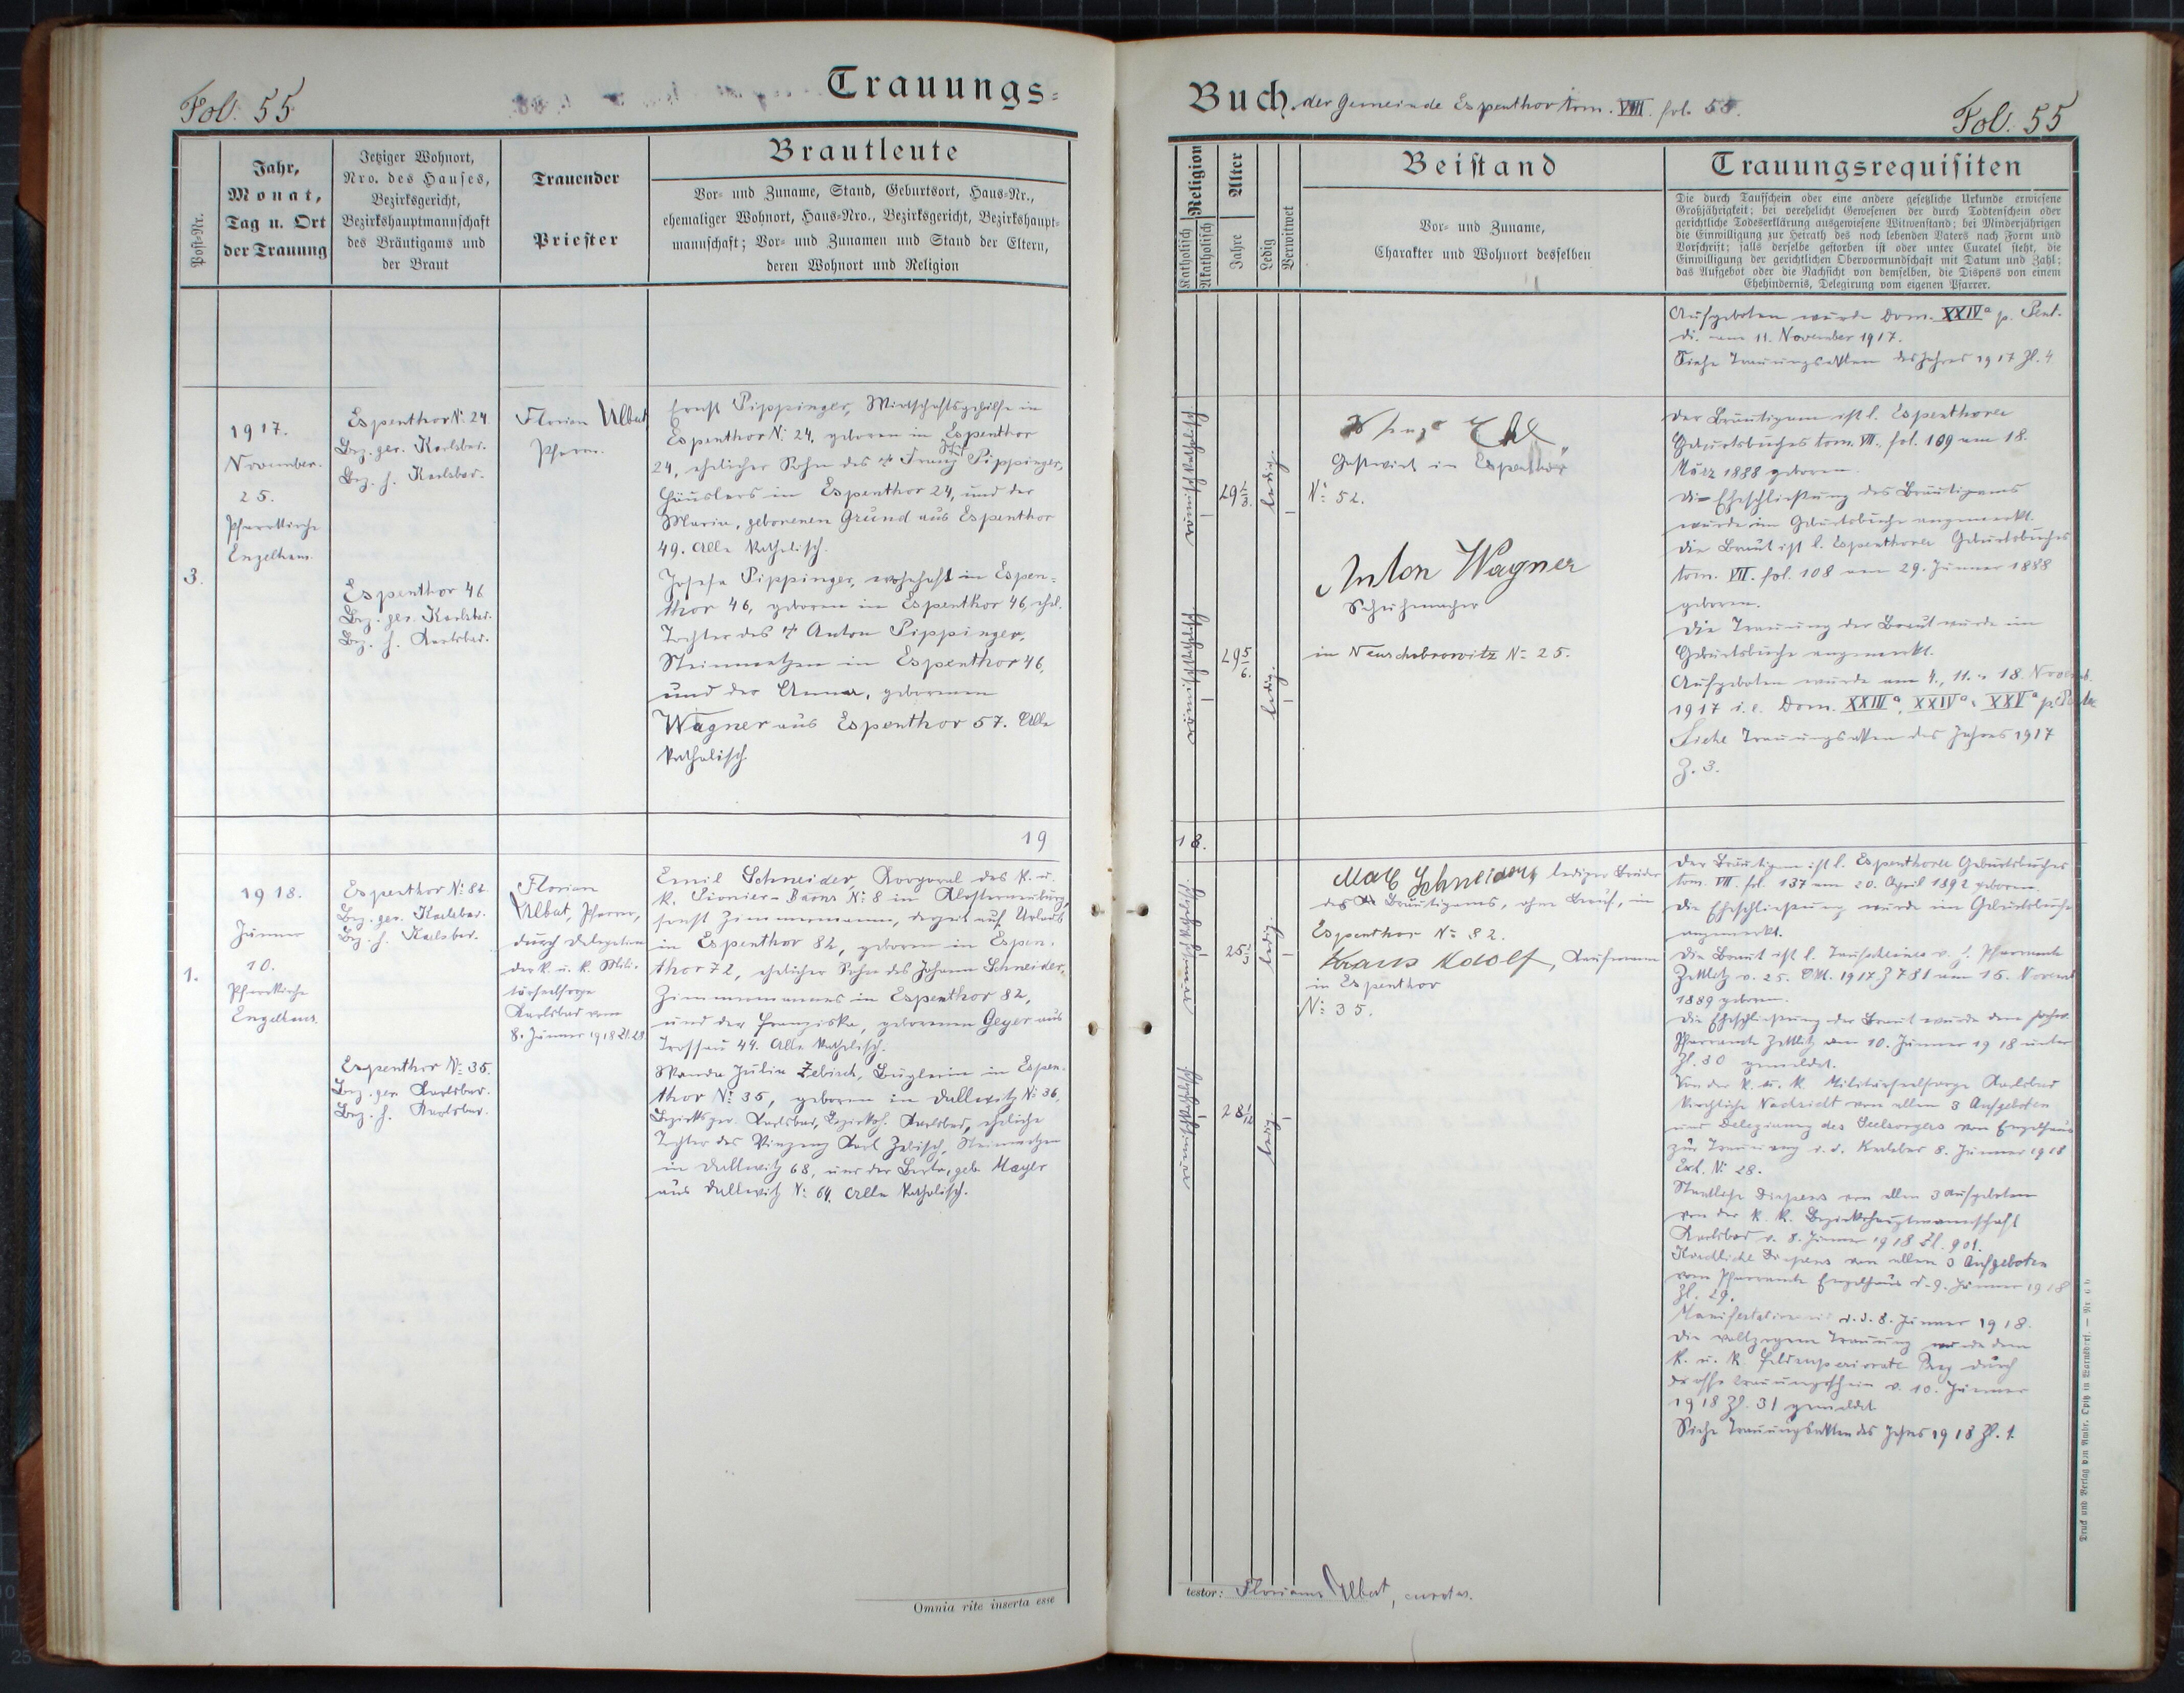 Fol. 55
Trauungs-
Post-Nr.
Jahr,
Monat,
Tag u. Ort
der Trauung
Jetziger Wohnort,
Nro. des Hauses,
Bezirksgericht,
Bezirkshauptmannschaft
des Bräutigams und
der Braut
Trauender
Priester
Brautleute
Vor- und Zuname, Stand, Geburtsort, Haus-Nr.,
ehemaliger Wohnort, Haus-Nro., Bezirksgericht, Bezirkshaupt-
mannschaft; Vor- und Zunamen und Stand der Eltern,
deren Wohnort und Religion
3.
1917.
November.
25.
Pfarrkirche
Engelhaus.
Espenthor N: 24
Bez. ger. Karlsbad.
Bez. h. Karlsbad.
Espenthor 46
Bez. ger. Karlsbad.
Bez. h. Karlsbad.
Florian Albert
Pfarrer.
Ernst Pippinger, Wirtschaftsgehilfe in
Espenthor N: 24, geboren in Espenthor
24, ehelicher Sohn des † Franz Pippinger,
Häuslers in Espenthor 24, und der
Maria, geborenen Grund aus Espenthor
49. Alle katholisch.
Josefa Pippinger, wohnhaft in Espen-
thor 46, geboren in Espenthor 46, ehel.
Tochter des † Anton Pippinger,
Steinmetzen in Espenthor 46,
und der Anna, geborenen
Wagner aus Espenthor 57. Alle
katholisch.
19
1.
1918.
Jänner
10.
Pfarrkirche
Engelhaus.
Espenthor N: 82
Bez. ger. Karlsbad.
Bez. h. Karlsbad.
Espenthor N: 35.
Bez. ger. Karlsbad.
Bez. h. Karlsbad.
Florian
Albert, Pfarrer,
durch Delegation
der k. u. k. Mili-
tärseelsorge
Karlsbad vom
8. Jänner 1918 Zl. 28
Emil Schneider, Korporal des k. u.
k. Pionier-Baons N: 8 in Klosterneuburg,
sonst Zimmermann, derzeit auf Urlaub
in Espenthor 82, geboren in Espen-
thor 72, ehelicher Sohn des Johann Schneider,
Zimmermannes in Espenthor 82,
und der Franziska, geborenen Geyer aus
Trossau 44. Alle katholisch.
Wanda Julia Zebisch, Büglerin in Espen-
thor N: 35, geboren in Dallwitz N: 36,
Bezirksger. Karlsbad, Bezirksh. Karlsbad, eheliche
Tochter des Vinzenz Karl Zebisch, Steinmetzen
in Dallwitz 68, und der Berta, geb. Mayer
aus Dallwitz N: 64. Alle katholisch.
Omnia rite inserta esse
Buch der Gemeinde Espenthor tom. VIII. fol. 55.
Fol. 55
Katholisch
Akatholisch
Religion
Jahre
Alter
Ledig
Verwitwet
Beistand
Vor- und Zuname,
Charakter und Wohnort desselben
Trauungsrequisiten
Die durch Taufschein oder eine andere gesetzliche Urkunde erwiesene
Großjährigkeit; bei verehelicht Gewesenen der durch Todtenschein oder
gerichtliche Todeserklärung ausgewiesene Witwenstand; bei Minderjährigen
die Einwilligung zur Heirath des noch lebenden Vaters nach Form und
Vorschrift; falls derselbe gestorben ist oder unter Curatel steht, die
Einwilligung der gerichtlichen Obervormundschaft mit Datum und Zahl;
das Aufgebot oder die Nachsicht von demselben, die Dispens von einem
Ehehindernis, Delegirung vom eigenen Pfarrer.
Aufgeboten wurde Dom. XXIVª p. Pent.
d. i. am 11. November 1917.
Siehe Trauungsakten des Jahres 1917 Zl. 4
römisch katholisch
29
ledig.
Gastwirt in Espenthor
N: 52.
römisch katholisch
29 5/6
ledig.
Anton Wagner
Schuhmacher
in Neuschobrowitz N: 25.
Der Bräutigam ist l. Espenthorer
Geburtsbuches tom. VII. fol. 109 am 18.
März 1888 geboren.
Die Eheschließung des Bräutigams
wurde im Geburtsbuche angemerkt.
Die Braut ist l. Espenthorer Geburtsbuches
tom. VII. fol. 108 am 29. Jänner 1888
geboren.
Die Trauung der Braut wurde im
Geburtsbuche angemerkt.
Aufgeboten wurde am 4., 11. u. 18. Novemb.
1917 i. e. Dom. XXIIIª, XXIVª, XXVª p. Pent.
Siehe Trauungsakten des Jahres 1917
Z. 3.
18.
römisch katholisch
25
ledig.
Schneider, lediger Bruder
des Bräutigams, ohne Beruf, in
Espenthor N: 82.
Kraus Adolf, Kaufmann
in Espenthor
N: 35.
römisch katholisch
28 1/12
ledig.
Der Bräutigam ist l. Espenthorer Geburtsbuches
tom. VII. fol. 137 am 20. April 1892 geboren.
Die Eheschließung wurde im Geburtsbuche
angemerkt.
Die Braut ist l. Taufscheines v. h. Pfarramte
Zettlitz v. 25. Okt. 1917 Z 781 am 15. Novemb
1889 geboren.
Die Eheschließung der Braut wurde dem hochw.
Pfarramte Zettlitz am 10. Jänner 1918 unter
Zl. 30 gemeldet.
Von der k. u. k. Militärseelsorge Karlsbad
kirchliche Nachsicht von allen 3 Aufgeboten
und Delegierung des Seelsorgers von Engelhaus
zur Trauung d. d. Karlsbad 8. Jänner 1918
Exh. N: 28.
Staatliche Dispens von allen 3 Aufgeboten
von der k. k. Bezirkshauptmannschaft
Karlsbad v. 8. Jänner 1918 Zl. 901.
Kirchliche Dispens von allen 3 Aufgeboten
vom Pfarramte Engelhaus d. 9. Jänner 1918
Zl. 29.
d. d. 8. Jänner 1918.
Die vollzogene Trauung wurde dem
k. u. k. Feldsuperiorate Prag durch
Trauungsschein v. 10. Jänner
1918 Zl. 31 gemeldet
Siehe Trauungsakten des Jahres 1918 Zl. 1.
testor: Florianus Albert, curatus.
Druck und Verlag von Ambr. Opitz in Warnsdorf.